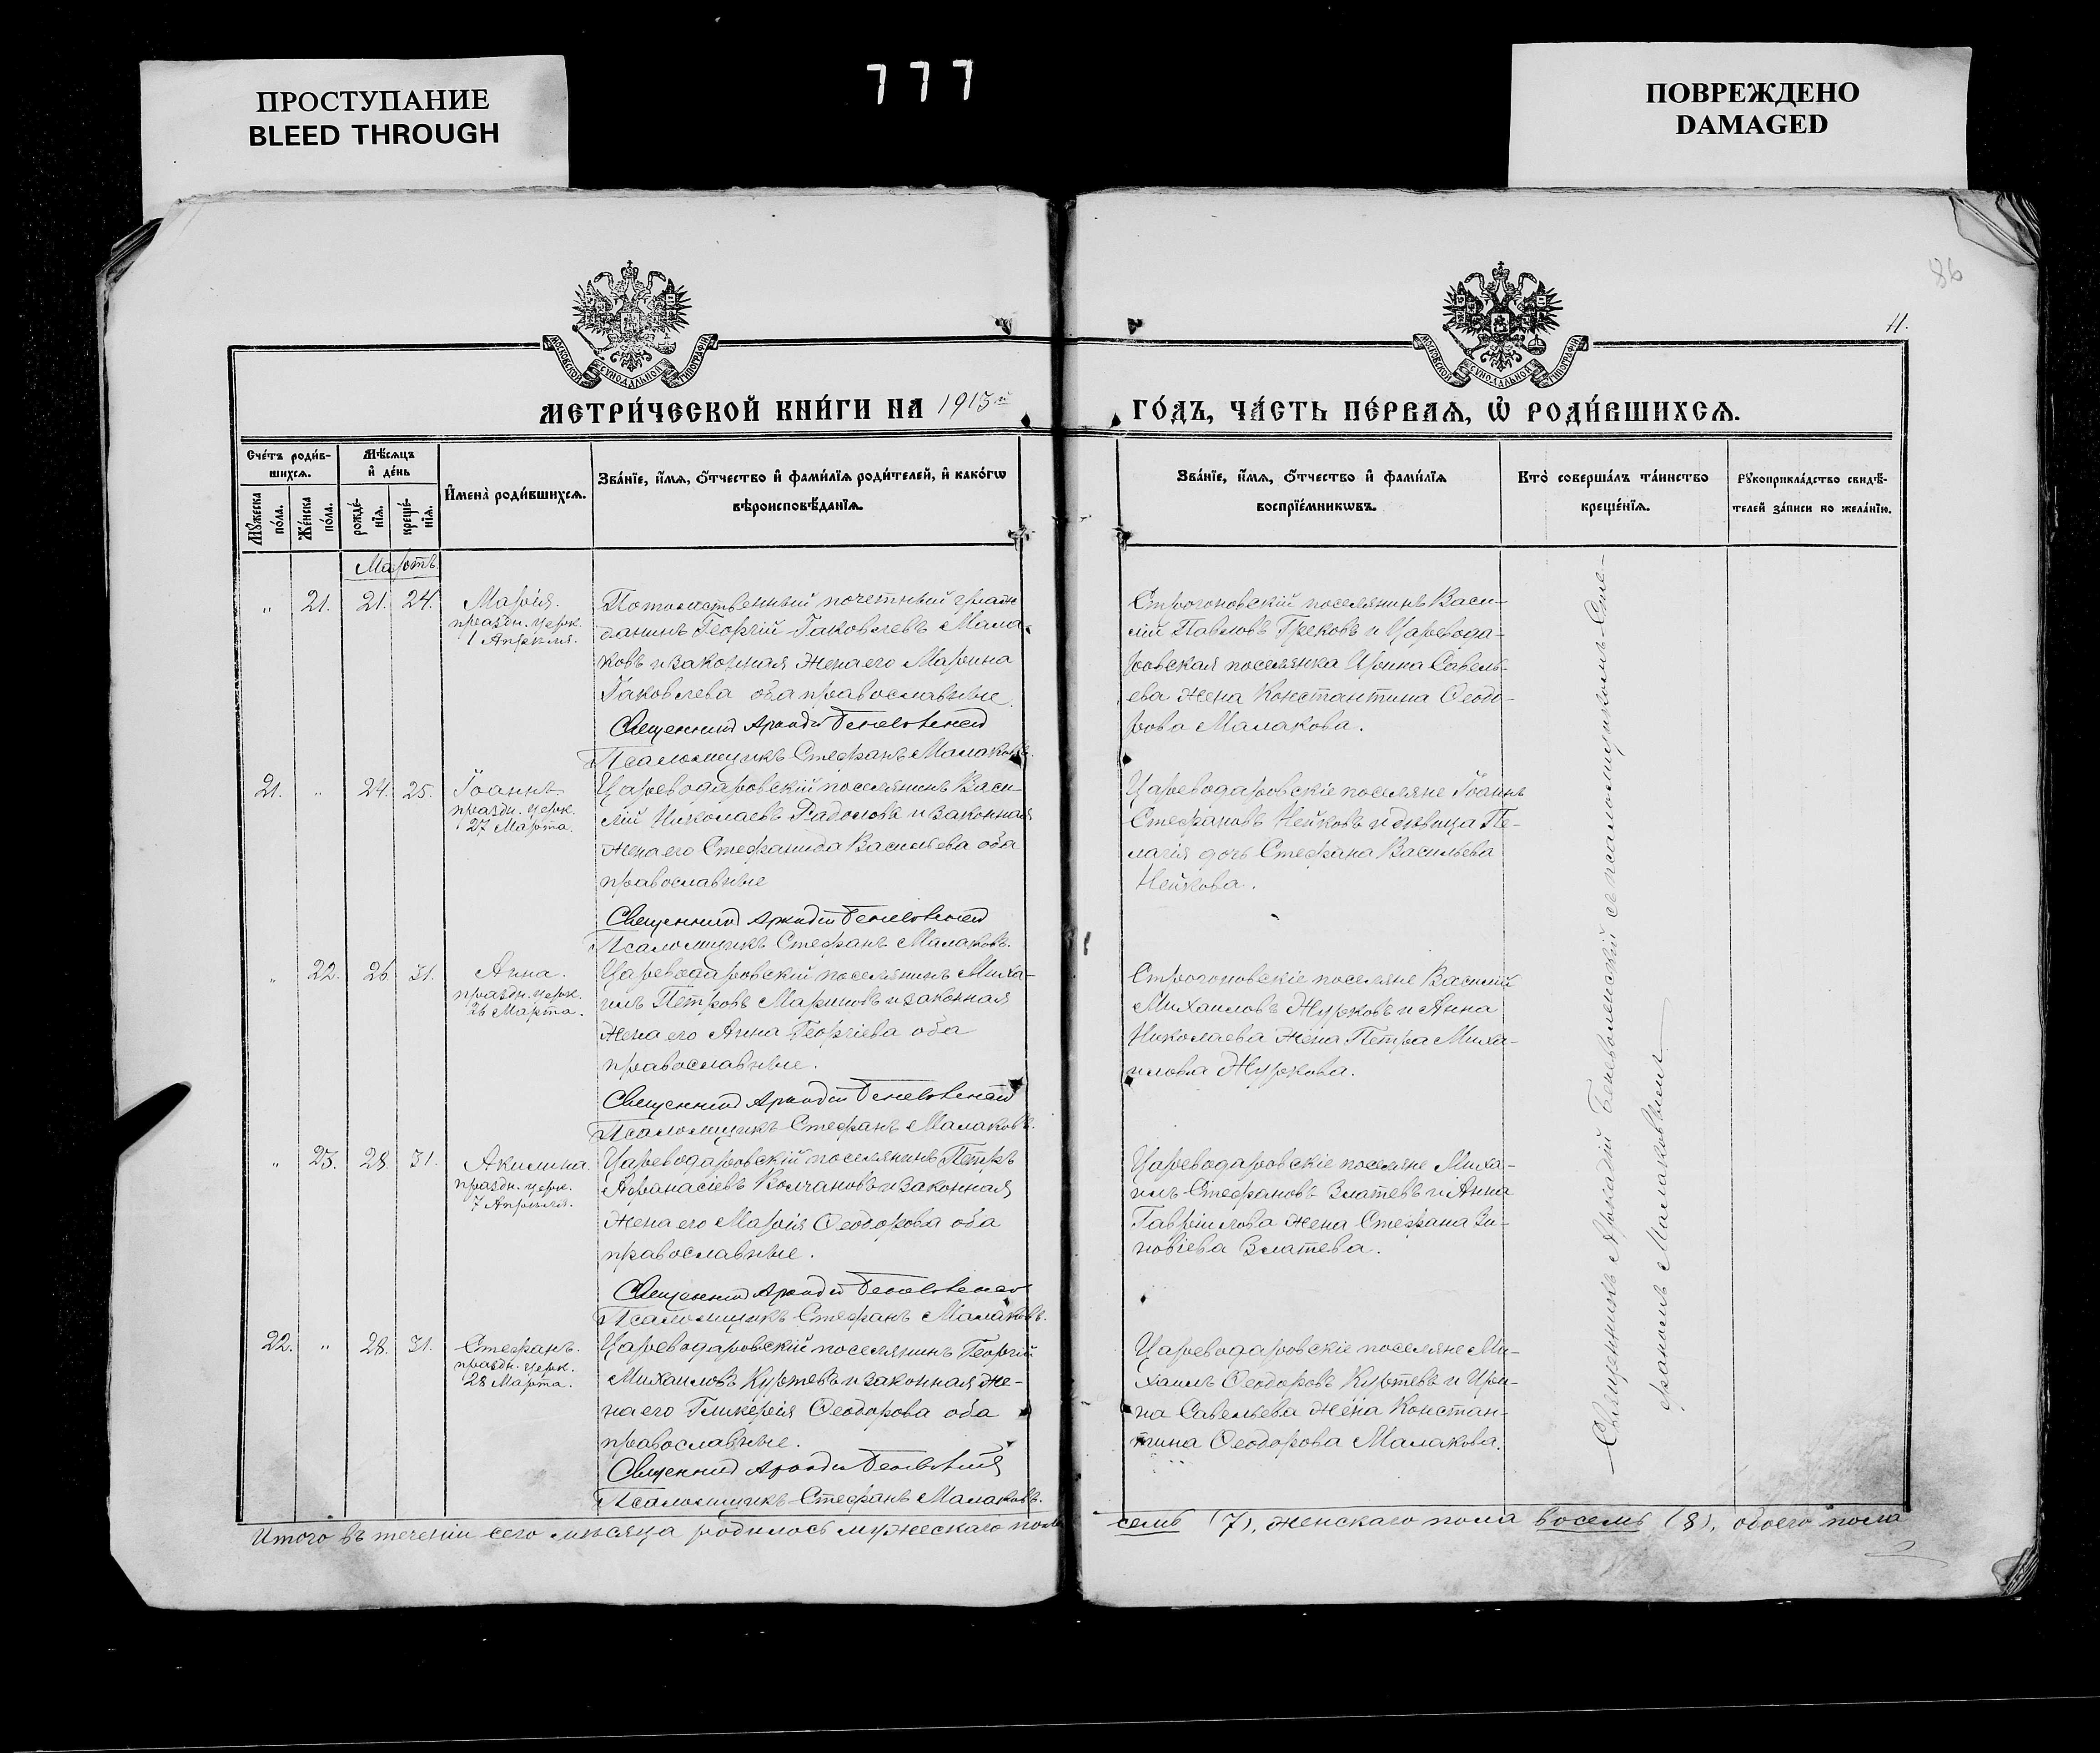 ПРОСТУПАНИЕ
BLEED THROUGH
777
ПОВРЕЖДЕНО
DAMAGED
86
11.
МОСКОВСКОЙ СѴНОДАЛЬНОЙ ТИПОГРАФІИ
МОСКОВСКОЙ СѴНОДАЛЬНОЙ ТИПОГРАФІИ
МЕТРИ́ЧЕСКОЙ КНИ́ГИ НА 1913й ГО́ДЪ, ЧА́СТЬ ПЕ́РВАѦ, Ѡ҆ РОДИ́ВШИХСѦ.
Сче́тъ роди́в-
шихсѧ.
Мꙋжеска по́ла.
Же́нска по́ла.
Мѣ́сѧцъ
и҆ де́нь
рожде́-
нїѧ.
креще́-
нїѧ.
И҆мена̀ роди́вшихсѧ.
Зва́нїе, и҆́мѧ, ѻ҆́тчество и҆ фами́лїѧ роди́телей, и҆ како́гѡ
вѣроисповѣ́данїѧ.
Зва́нїе, и҆́мѧ, ѻ҆́тчество и҆ фами́лїѧ
воспрїе́мникѡвъ.
Кто̀ соверша́лъ та́инство
креще́нїѧ.
Рꙋкоприкла́дство свидѣ́-
телей за́писи по жела́нїю.
Мартъ.
" 21. 21. 24. Марія.
праздн. церк.
1 Апрѣля.
Потомственный почетный граж
данинъ Георгій Іаковлевъ Мала-
ковъ и законная жена его Марина
Іаковлева оба православные.
Священникъ Аркадій Беневоленскій
Псаломщикъ Стефанъ Малаковъ.
Строгоновскій поселянинъ Васи-
лій Павловъ Грековъ и Царевода-
ровская поселянка Ирина Савель-
ева жена Константина Ѳеодо-
рова Малакова.
21. " 24. 25. Іоаннъ.
праздн. церк.
27 Марта.
Цареводаровскій поселянинъ Васи-
лій Николаевъ Радоловъ и законная
жена его Стефанида Васильева оба
православные
Священникъ Аркадій Беневоленскій
Псаломщикъ Стефанъ Малаковъ.
Цареводаровскіе поселяне Іоаннъ
Стефановъ Нейковъ и дѣвица Пе-
лагія дочь Стефана Васильева
Нейкова.
" 22. 26 31. Анна.
праздн. церк.
26 Марта.
Цареводаровскій поселянинъ Миха-
илъ Петровъ Мариновъ и законная
жена его Анна Георгіева оба
православные.
Священникъ Аркадій Беневоленскій
Псаломщикъ Стефанъ Малаковъ.
Строгоновскіе поселяне Василій
Михаиловъ Журковъ и Анна
Николаева жена Петра Миха-
илова Журкова.
" 23. 28 31. Акилина.
праздн. церк.
7 Апрѣля.
Цареводаровскій поселянинъ Петръ
Аѳанасіевъ Колчановъ и законная
жена его Марія Ѳеодорова оба
православные.
Священникъ Аркадій Беневоленскій
Псаломщикъ Стефанъ Малаковъ.
Цареводаровскіе поселяне Миха-
илъ Стефановъ Златевъ и Анна
Гавріилова жена Стефана Зи-
новіева Златева.
22. " 28. 31. Стефанъ.
праздн. церк.
28 Марта.
Цареводаровскій поселянинъ Георгій
Михаиловъ Куртевъ и законная же-
на его Гликерія Ѳеодорова оба
православные.
Священникъ Аркадій Беневоленскій
Псаломщикъ Стефанъ Малаковъ.
Цареводаровскіе поселяне Ми-
хаилъ Ѳеодоровъ Куртевъ и Ири-
на Савельева жена Констан-
тина Ѳеодорова Малакова.
Священникъ Аркадій Беневоленскій съ псаломщикомъ Сте-
фаномъ Малаковымъ
Итого въ теченіи сего мѣсяца родилось мужескаго пола семь (7), женскаго пола восемь (8), обоего пола